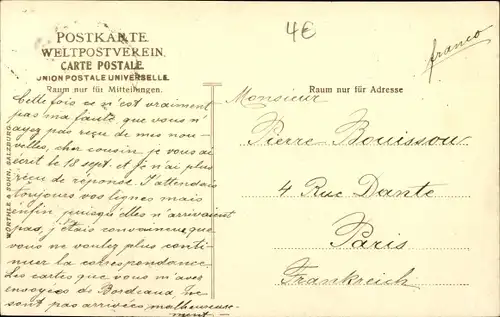 4€
franco
POSTKARTE
WELTPOSTVEREIN
CARTE POSTALE
UNION POSTALE UNIVERSELLE.
Raum nur für Mitteilungen.
Raum nur für Adresse
WÜRTHLE & SOHN, SALZBURG.
Cette fois ce n'est vraiment
pas ma faute que vous n'
ayez pas reçu de mes nou-
velles, cher cousin je vous ai
écrit le 18 sept. et je n'ai plus
reçu de réponse. J'attendais
toujours vos lignes mais
enfin puisqu'elles n'arrivaient
pas, j'étais convaincue que
vous ne vouliez plus conti-
nuer la correspondance.
Les cartes que vous m'avez
envoyées de Bordeaux, ne
sont pas arrivées malheureuse-
ment.-
Monsieur
Pierre Bouissou
4 Rue Dante
Paris
Frankreich